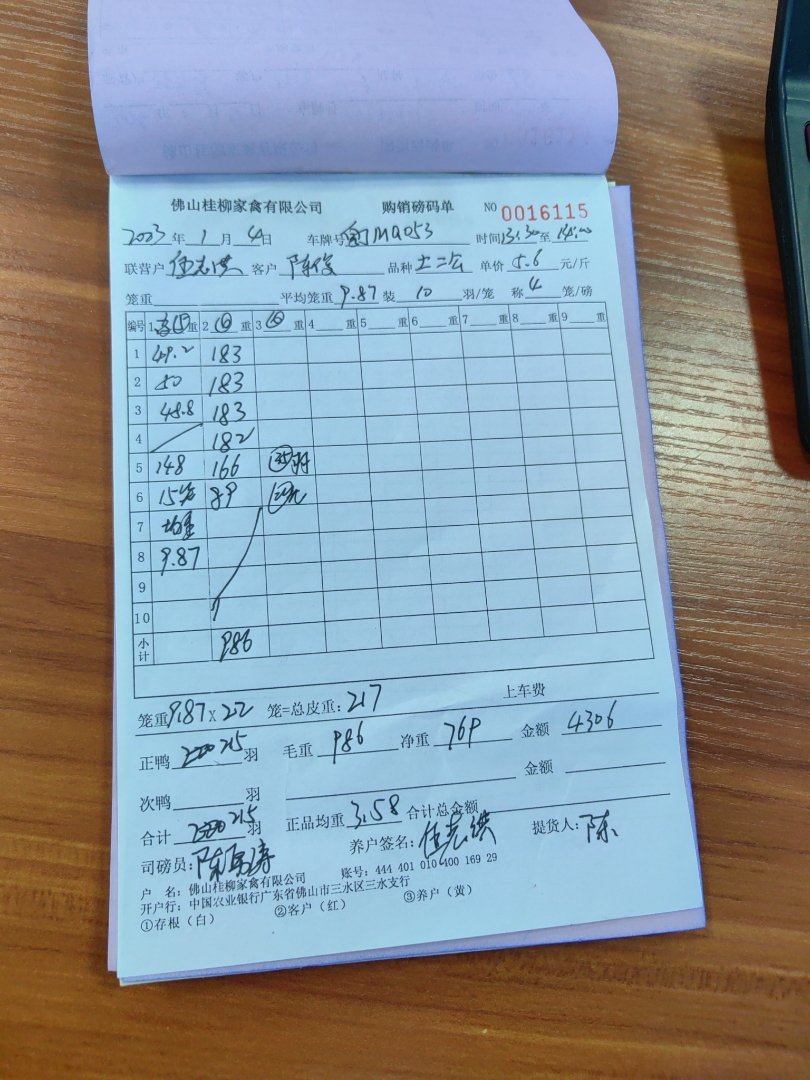 佛山桂柳家禽有限公司 购销磅码单 NO 0016115
2023 年 1 月 4 日 车牌号 粤JMQ053 时间 13:30 至 14:00
联营户 伍志洪 客户 陈俊 品种 土二公 单价 5.6 元/斤
笼重 平均笼重 9.87 装 10 羽/笼 称 4 笼/磅
编号 1 重 2 ④ 重 3 重 4 重 5 重 6 重 7 重 8 重 9 重
1 49.2 183
2 50 183
3 48.8 183
4 182
5 148 166 羽
6 15笼 89
7 均重
8 9.87
9
10
小计 986
笼重 9.87 x 22 笼=总皮重: 217 上车费
正鸭 220 215 羽 毛重 986 净重 769 金额 4306
次鸭 羽 金额
合计 220 215 羽 正品均重 3.58 合计总金额
司磅员: 养户签名: 伍志洪 提货人: 陈
户 名: 佛山桂柳家禽有限公司 账号: 444 401 010 400 169 29
开户行: 中国农业银行广东省佛山市三水区三水支行
①存根（白） ②客户（红） ③养户（黄）